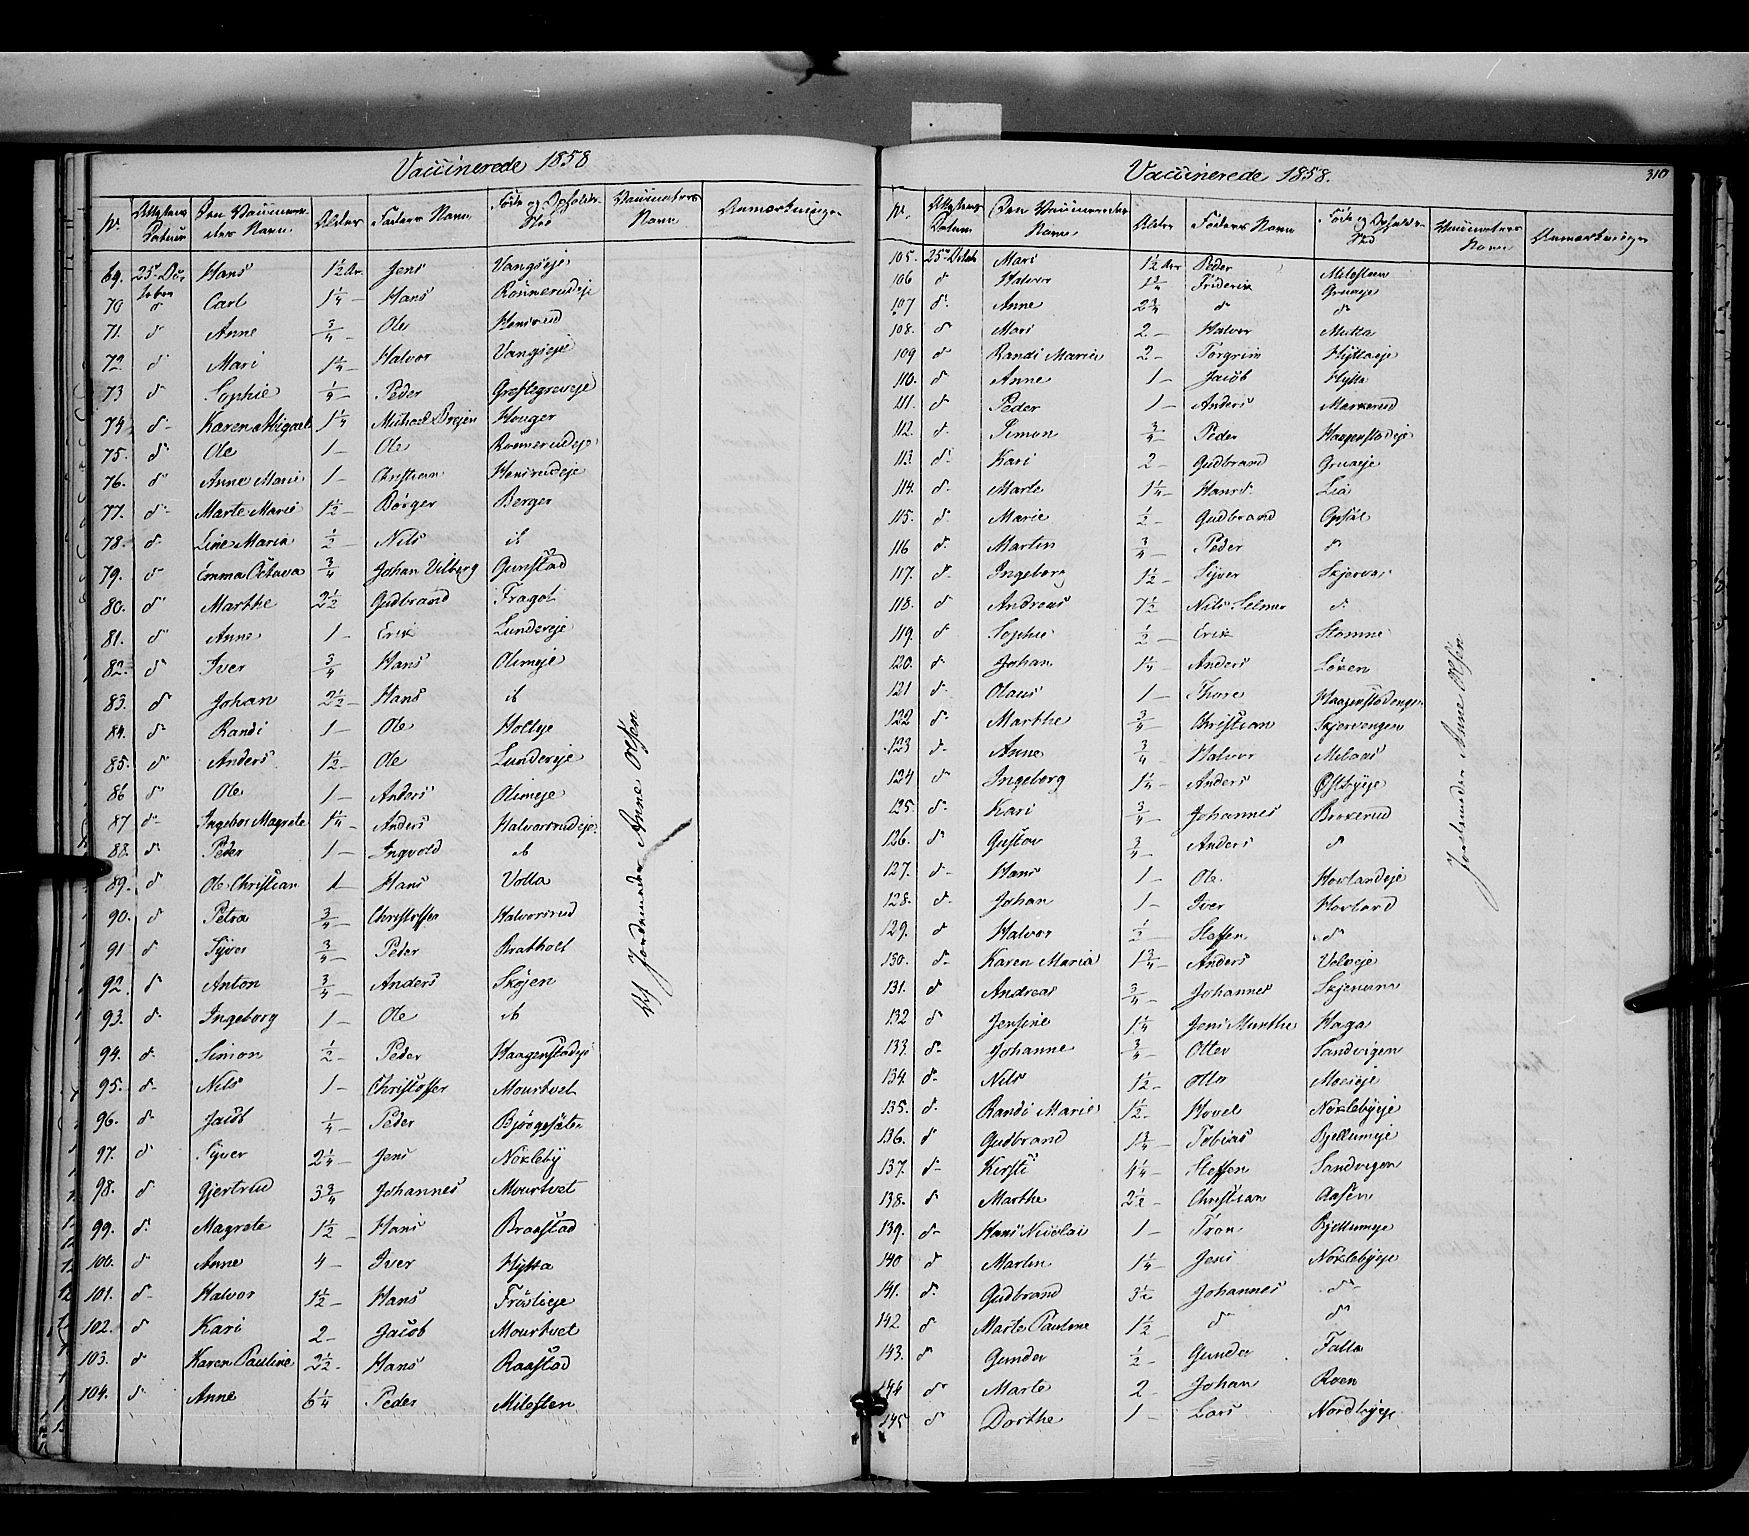 Vaccinerede 1858
Nr. Attestens Datum Den Vaccinere- des Navn. Alder Faders Navn Føde og Opholds- Sted Vaccinators Navn. Anmærkninger
69. 25de Oc- tober Hans 1½ Aar Jens Vangseje
70 d° Carl 1¼ – Hans Rønnerudeje
71. d° Anne ¾ – Ole Honsrud
72. d° Mari 1¼ – Halvor Vangseje
73 d° Sophie ¼ – Peder
74 d° Karen Abigael 1¼ Michael Houger
75. d° Ole 1 – Ole Rønnerudeje
76. d° Anne Marie 1 – Christian Honsrudeje
77. d° Marte Marie 1½ – Børger Berger
78. d° Line Maria ½ – Nils ib
79. d° Emma Octava ¾ Johan Vilberg Gunstad
80. d° Marthe 2½ Gudbrand
81. d° Anne 1 – Erik Lundereje
82. d° Iver ¾ Hans Olimeje
83. d° Johan 2½ – Hans ib
84. d° Randi 1 – Ole
85. d° Anders 1½ – Ole Lundereje
86 d° Ole 1 – Anders Olimeje
87 d° Ingebor Magrete 1¼ – Anders Halvorsrudeje
88. d° Peder 1 – Ingvold ib
89. d° Ole Christian 1 – Hans Volla
90. d° Petra ¾ – Christoffer Halvorsrud
91 d° Syver ¾ – Peder Bratholt
92. d° Anton ¾ – Anders Skøjen
93. d° Ingeborg 1 – Ole ib
94. d° Simon ½ – Peder Haagenstadeje
95. d° Nils 1 – Christoffer Mourtvet
96. d° Jacob ¼ – Peder Bjørgesæter
97. d° Syver 2¼ – Jens Nøkleby
98. d° Gjertrud 3¾ Johannes Mourtvet
99. d° Magrete 1½ – Hans Braastad
100. d° Anne 4 – Iver Hytta
101. d° Halvor 1½ – Hans Frøslieje
102. d° Kari 2 – Jacob Mourtvet
103. d° Karen Pauline 2½ – Hans Raastad
104. d° Anne 6¼ Peder Milesten
Jordemoder Anne Olsen
Vaccinerede 1858. 310
Nr. Attestens Datum Den Vaccineredes Navn. Alder Faders Navn Føde og Opholds- Sted Vaccinators Navn Anmærkninger
105. 25de Octob Mari 1½ Aar Peder Milesteen
106 d° Halvor 1¾ Friderik Gruaeje
107 d° Anne 2¾ d° d°
108. d° Mari 2 – Halvor Mutta
109 d° Randi Marie 2 – Torgrim Hyttaeje
110. d° Anne 1 – Jacob Hytta
111. d° Peder 1 – Anders Markerud
112. d° Simon ¾ – Peder Haagenstadeje
113. d° Kari 2 – Gudbrand Gruaeje
114. d° Marte 1¼ – Hans Lia
115. d° Marie ½ – Gudbrand Opsal
116 d° Martin ¾ – Peder d°
117. d° Ingeborg 1½ – Syver
118. d° Andreas 7½ Nils Selmer d°
119. d° Sophie ½ – Erik Stomne
120. d° Johan 1¼ – Anders Løken
121 d° Olaus 1 – Thore Haagenstadengen
122 d° Marthe ¾ – Christian Skjervengen
123 d° Anne ¾ – Halvor Milaas
124 d° Ingeborg 1¼ – Anders Østbyeje
125 d° Kari ¾ – Johannes Brokerud
126. d° Gustav ¾ – Anders d°
127. d° Hans 1 – Ole Hovlandeje
128. d° Johan 1 – Iver Hovland
129. d° Halvor ½ – Steffen d°
130. d° Karen Maria 1¾ – Anders Voldeje
131. d° Andreas ¾ – Johannes
132 d° Jensine 1¼ Jens Murthe Haga
133. d° Johanne ¾ – Otter Sandvigen
134. d° Nils 1½ – Otto Moeseje
135. d° Randi Marie 1½ – Hovel Nøklebyeje
136. d° Gudbrand 1¾ – Tobias Bjellumeje
137. d° Kirsti 4¼ – Steffen Sandvigen
138. d° Marthe 2½ – Christian Aasen
139. d° Hans Nicolai 1 – Tron Bjellumeje
140 d° Martin 1¼ – Jens Nøklebyeje
141. d° Gudbrand 3½ Johannes d°
142. d° Marte Pauline 1½ – d° d°
143. d° Gunder ½ – Gunder Falla
144 d° Marte 2 – Johan Roen
145 d° Dorthe 1 – Lars Nordbyeje
Jordemoder Anne Olsen